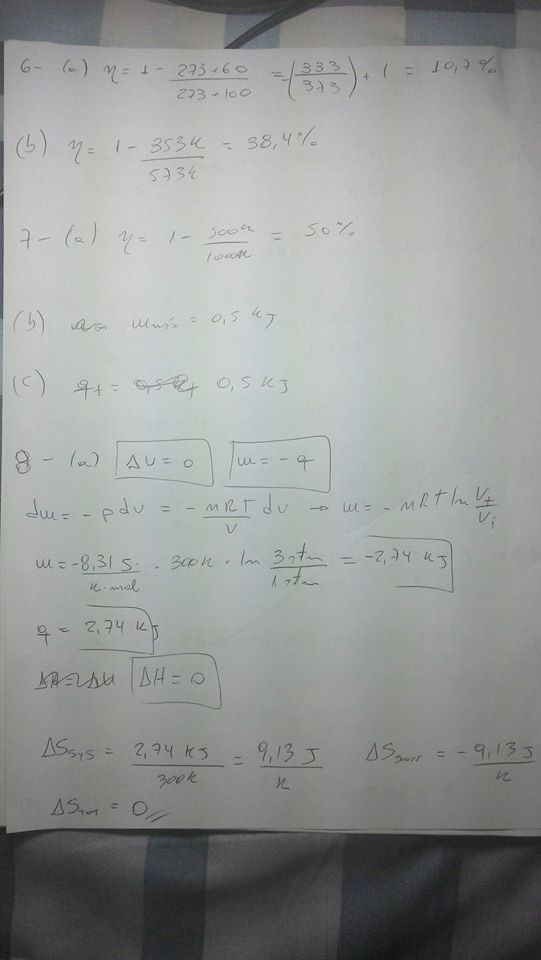 6- (a) η = 1 - (273+60)/(273+100) = -(333/373) + 1 = 10,7%
(b) η = 1 - 353K/573K = 38,4%
7- (a) η = 1 - 500K/1000K = 50%
(b) = 0,5 KJ
(c) 0,5 KJ
8 - (a) ΔU = 0 w = - q
dw = - pdv = - nRT/V dv → w = - nRT ln Vf/Vi
w = -8,31 J/K·mol · 300K · ln 3atm/1atm = -2,74 KJ
q = 2,74 KJ
ΔH = 0
ΔSsys = 2,74 KJ/300K = 9,13 J/K ΔSsurr = - 9,13 J/K
ΔStot = 0